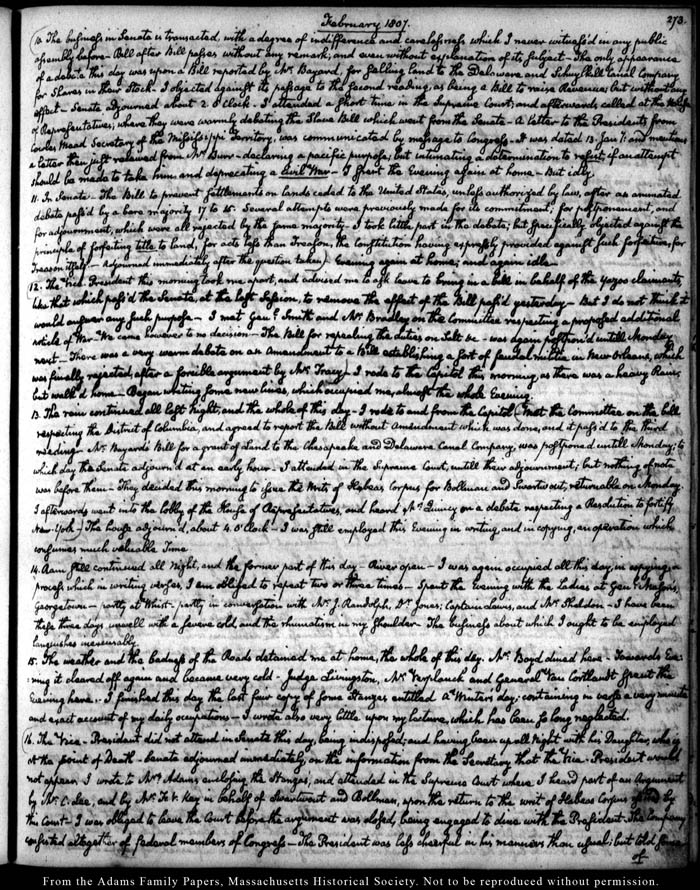 February 1807.
273.
10. The business in Senate is transacted, with a degree of indifference and carelessness which I never witness'd in any public
assembly before – Bill after Bill passes without any remark; and even without explanation of its subject – The only appearance
of a debate this day was upon a Bill reported by Mr. Bayard, for selling land to the Delaware and Schuylkill Canal Company
for Shares in their Stock – I objected against its passage to the second reading, as being a Bill to raise Revenue; but without any
effect – Senate adjourned about 2 o'clock – I attended a short time in the Supreme Court; and afterwards called at the House
of Representatives; where they were warmly debating the Slave Bill which went from the Senate – A letter to the President from
Cowles Mead Secretary of the Mississippi Territory, was communicated by message to Congress – It was dated 13. Jany: and mentions
a letter then just received from Mr. Burr – declaring a pacific purpose; but intimating a determination to resist, if an attempt
should be made to take him and deprecating a Civil War – I spent the Evening again at home – But idly.
11. In Senate – The Bill to prevent settlements on lands ceded to the United States, unless authorized by law, after an animated
debate pass'd by a bare majority 17 to 15. Several attempts were previously made for its commitment; for postponement, and
for adjournment, which were all rejected by the same majority – I took little part in the debate; but specifically objected against the
principle of forfeiting title to land, for acts less than Treason, the Constitution having expressly provided against such forfeiture, for
Treason itself – Adjourned immediately after the question taken – Evening again at home; and again idle.
12. The Vice-President this morning took me apart, and advised me to ask leave to bring in a bill in behalf of the Yazoo claimants,
like that which pass'd the Senate, at the last Session, to remove the effect of the Bill pass'd yesterday – But I do not think it
would answer any such purpose – I met Genl. Smith and Mr. Bradley on the Committee respecting a proposed additional
article of War – We came however to no decision – The Bill for repealing the duties on Salt &c – was again postpon'd until Monday
next – There was a very warm debate on an Amendment to a Bill establishing a sort of militia in New Orleans, which
was finally rejected, after a forcible argument by Mr. Tracy – I rode to the Capitol this morning, as there was a heavy Rain;
but walk'd home – Began writing some new lines, which occupied me, almost the whole Evening.
13. The rain continued all last Night, and the whole of this day – I rode to and from the Capitol – Met the Committee on the bill
respecting the District of Columbia, and agreed to report the Bill without Amendment which was done, and it pass'd to the third
reading – Mr. Bayard's Bill for a grant of Land to the Chesapeake and Delaware Canal Company, was postponed untill Monday; to
which day the Senate adjourn'd at an early hour – I attended in the Supreme Court, untill their adjournment; but nothing of note
was before them – They decided this morning to issue the Writs of Habeas Corpus for Bollman and Swartwout, returnable on Monday.
I afterwards went into the lobby of the House of Representatives, and heard Mr. Quincy on a debate respecting a Resolution to fortify
New-York – The house adjourn'd, about 4. o'Clock – I was still employed this Evening in writing, and in copying, an operation which
consumes much valuable Time
14. Rain still continued all Night, and the former part of this day – River open – I was again occupied all this day, in copying, a
process which in writing verses, I am obliged to repeat two or three times – Spent the Evening with the Ladies at Genl. Mason's,
Georgetown – partly at Whist – partly in conversation with Mr. J. Randolph, Dr. Jones, Captain Lewis, and Mr. Sheldon – I have been
these three days unwell with a severe cold and the rheumatism in my shoulder – The business about which I ought to be employed
languishes miserably.
15. The weather and the badness of the Roads detained me at home, the whole of this day. Mr. Boyd dined here – Towards Eve-
ning it cleared off again and became very cold – Judge Livingston, Mr. Verplanck and General Van Cortlandt spent the
Evening here. – I finished this day the last fair copy of some Stanzas entitled A Winter's day; containing in verse a very minute
and exact account of my daily occupations – I wrote also very little upon my lecture, which has been so long neglected.
16. The Vice-President did not attend in Senate this day, being indisposed; and having been up all Night with his Daughter, who is
at the point of Death – Senate adjourned immediately, on the information from the Secretary that the Vice-President would
not appear. I wrote to Mrs. Adams enclosing the Stanzas, and attended in the Supreme Court where I heard part of an Argument
by Mr. C. Lee, and by Mr. F. S. Key in behalf of Swartwout and Bollman, upon the return to the writ of Habeas Corpus by
the Court – I was obliged to leave the Court before the argument was closed, being engaged to dine with the President. The Company
consisted altogether of federal members of Congress – The President was less cheerful in his manners than usual; but told some
of
From the Adams Family Papers, Massachusetts Historical Society. Not to be reproduced without permission.